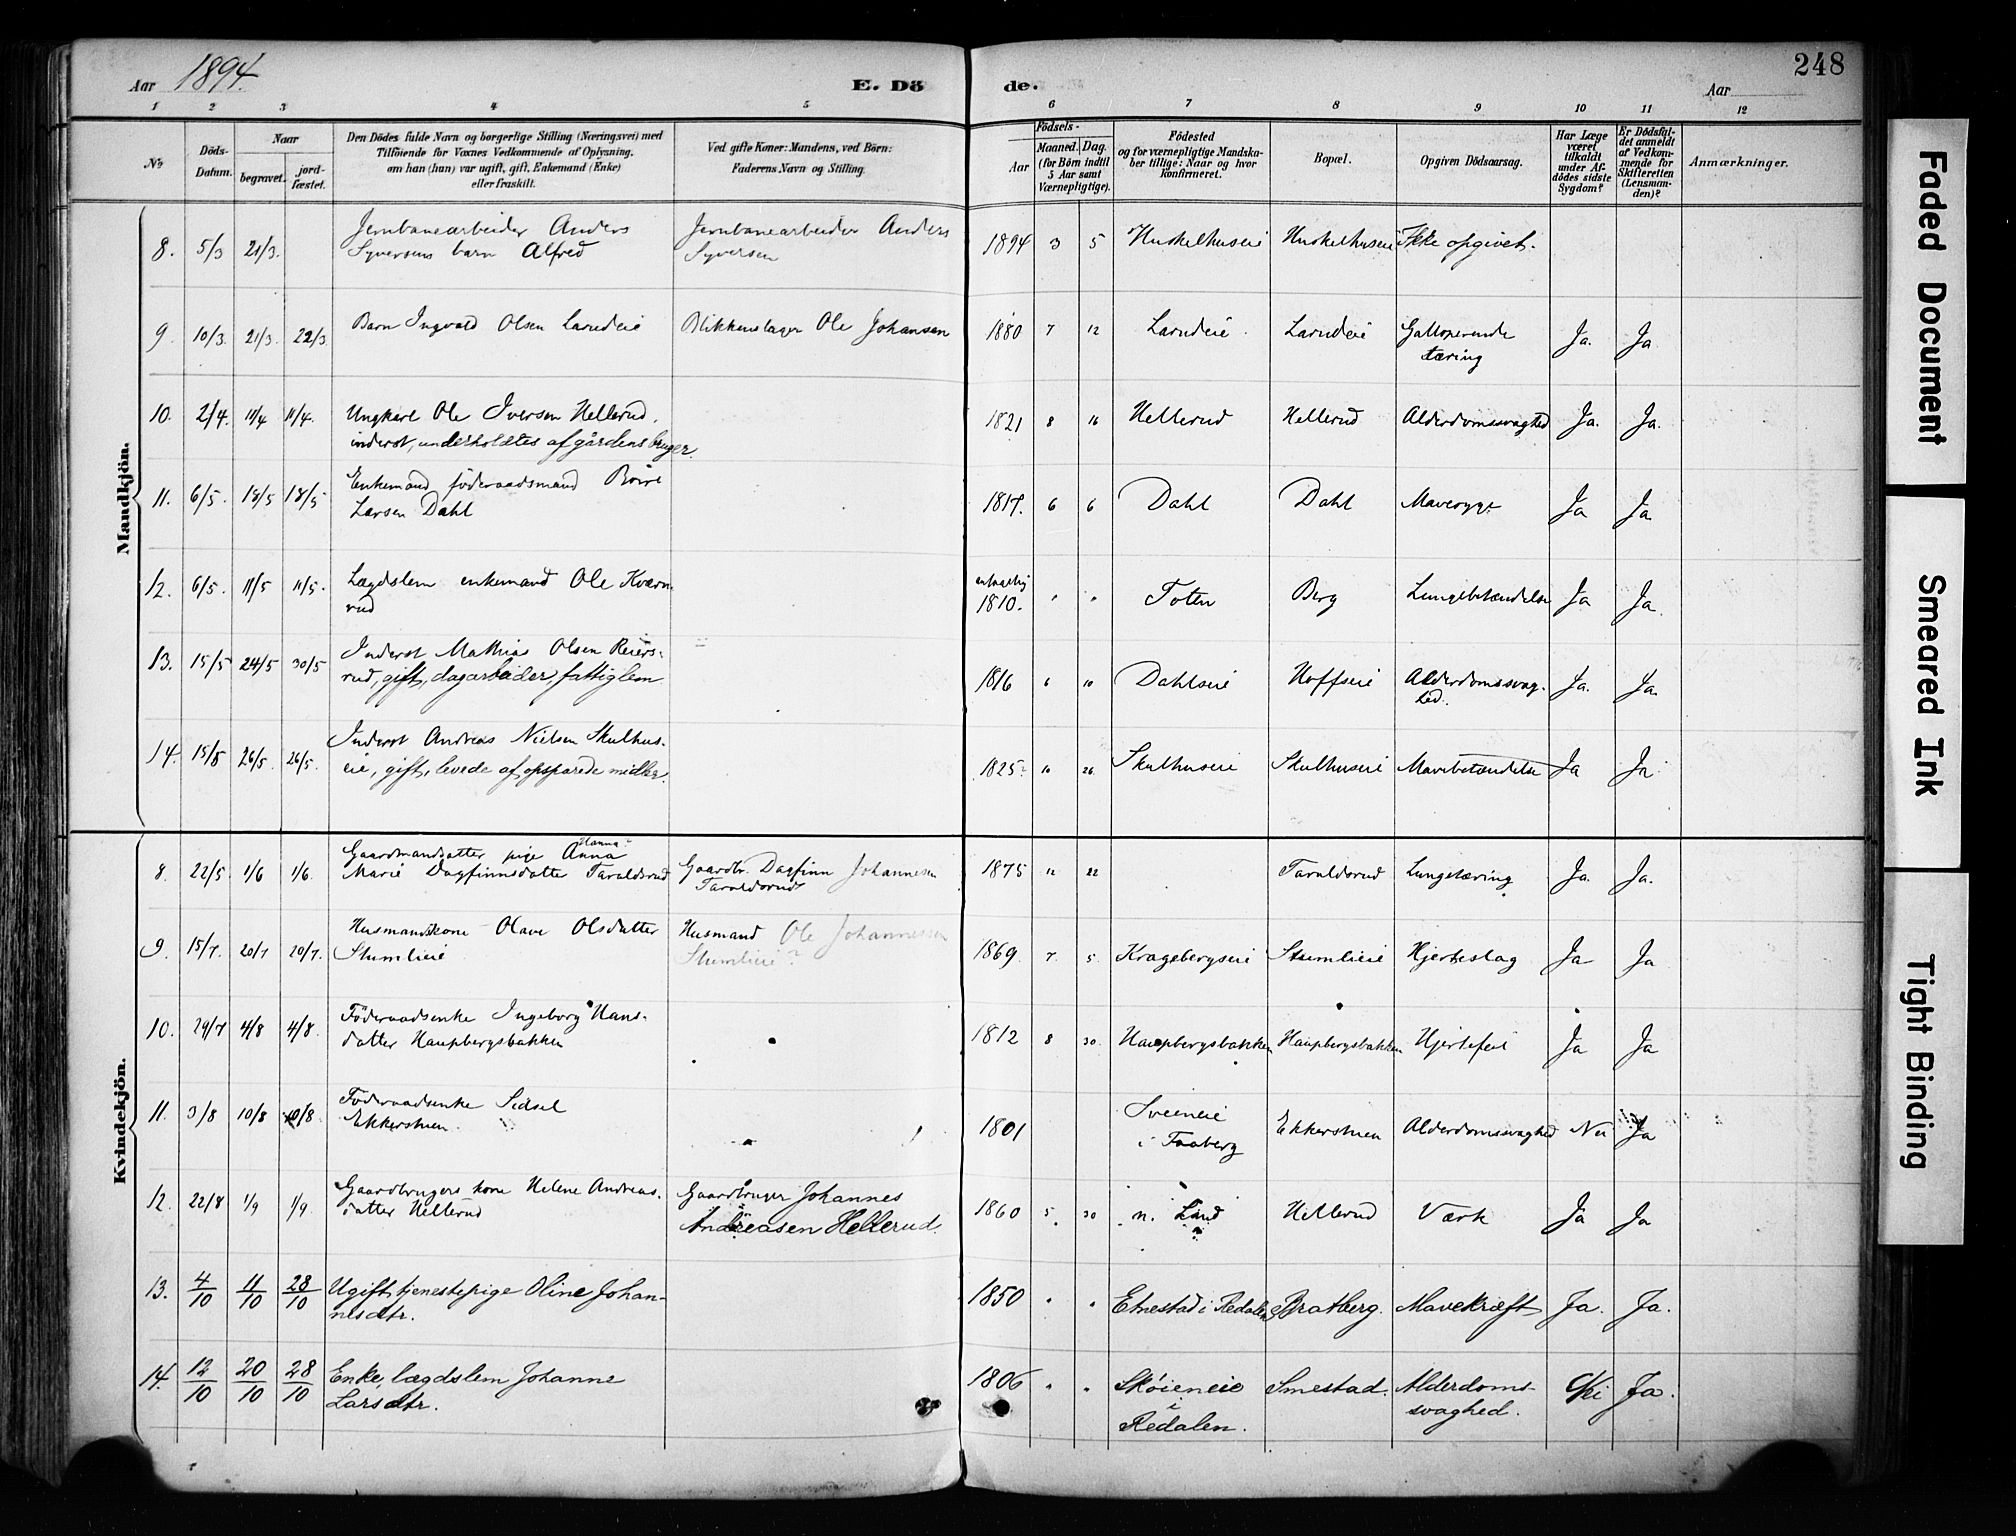 Aar 1894.
E. Dö
de.
248
Aar
1 2 3 4 5 6 7 8 9 10 11 12
No
Döds-Datum.
Naar
begravet.
jord-fæstet.
Den Dödes fulde Navn og borgerlige Stilling (Næringsvei) med
Tilföiende for Voxnes Vedkommende af Oplysning,
om han (hun) var ugift, gift, Enkemand (Enke)
eller fraskilt.
Ved gifte Koner: Mandens, ved Börn:
Faderens Navn og Stilling.
Födsels-
Aar
Maaned. Dag.
(for Börn indtil
5 Aar samt
Værnepligtige).
Födested
og for værnepligtige Mandska-
ber tillige: Naar og hvor
konfirmeret.
Bopæl.
Opgiven Dödsaarsag.
Har Læge
været
tilkaldt
under Af-
dödes sidste
Sygdom?
Er Dödsfal-
det anmeldt
af Vedkom-
mende for
Skifteretten
(Lensman-
den)?
Anmærkninger.
Mandkjön.
8. 5/3 21/3. Jernbanearbeider Anders
Syversens barn Alfred
Jernbanearbeider Anders
Syversen
1894 3 5 Huskelhuseie Huskelhuseie Ikke opgivet.
9. 10/3. 21/3. 22/3. Barn Ingvald Olsen Larudeie Blikkenslager Ole Johansen 1880 7 12 Larudeie Larudeie Galloperende
tæring
Ja. Ja
10. 2/4. 11/4 11/4. Ungkarl Ole Iversen Hellerud,
inderst, underholdtes af gårdens bruger.
1821 8 16 Hellerud Hellerud Alderdomssvaghed Ja. Ja.
11. 6/5. 18/5 18/5 Enkemand föderaadsmand Börre
Larsen Dahl
1817. 6 6 Dahl Dahl Mavesyge Ja Ja
12. 6/5. 11/5 11/5. Lægdslem enkemand Ole Kværn-
rud
1810. " " Toten Berg Lungebetændelse Ja Ja.
13. 15/5 24/5 30/5 Inderst Mathias Olsen Reiers-
rud, gift, dagarbeider, fattiglem
1816 6 10 Dahlseie Hoffseie Alderdomssvag-
hed.
Ja. Ja.
14. 15/5 26/5. 26/5. Inderst Andreas Nielsen Skulhus-
eie, gift, levede af opsparede midler.
1825? 10 26 Skulhuseie Skulhuseie Mavebetændelse Ja Ja
Kvindekjön.
8. 22/5 1/6 1/6. Gaardmandsdatter pige Anna Hanna?
Marie Dagfinnsdatter Taraldsrud
Gaardbr. Dagfinn Johannesen
Taraldsrud
1875 12 22 Taraldsrud Lungetæring Ja. Ja.
9. 15/7. 20/7 20/7. Husmandskone Olave Olsdatter
Stumlieie
Husmand Ole Johannessen
Stumlieie?
1869 7. 5. Kragebergseie Stumlieie Hjerteslag Ja Ja
10. 29/7 4/8 4/8. Föderaadsenke Ingeborg Hans-
datter Haugbergsbakken
1812 8 30. Haugbergsbakken Haugbergsbakken Hjertefeil Ja Ja
11. 3/8 10/8 10/8. Föderaadsenke Sidsel
Ekkerstuen.
1801 Sveeneie
i Faaberg
Ekkerstuen Alderdomssvaghed Nei Ja
12. 22/8 1/9 1/9. Gaardbrugers kone Helene Andreas-
datter Hellerud
Gaardbruger Johannes
Andreasen Hellerud.
1860 5. 30 n. Land Hellerud Værk Ja Ja
13. 4/10 11/10 28/10 Ugift tjenestepige Oline Johan-
nesdtr.
1850 " " Etnestad i Redalen Bratberg. Mavekræft Ja. Ja.
14. 12/10 20/10 28/10 Enke, lægdslem Johanne
Larsdtr.
1806 " " Skøieneie
i
Redalen.
Smestad. Alderdoms-
svaghed.
Nei Ja.
Faded Document
Smeared Ink
Tight Binding